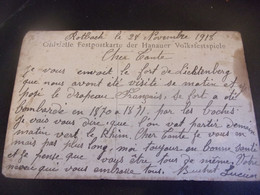 Rotbach le 28 Novembre 1918
Offizielle Festpostkarte der Hanauer Volksfestspiele
Cher Tante
Je vous envoit le fort de Lichtenberg
que nous avont été visité se matin et
posé le Drapeau Français, le fort a été
bombardé en 1870 a 1871, par les boches
Je vais vous dire que l'on vat partir demain
matin vert le Rhin. Cher Tante je vous en
mais pas plus long, moi toujour en bonne santé
et je pense que vous être tous de même
moi qui vous embrasse tous. Lucien